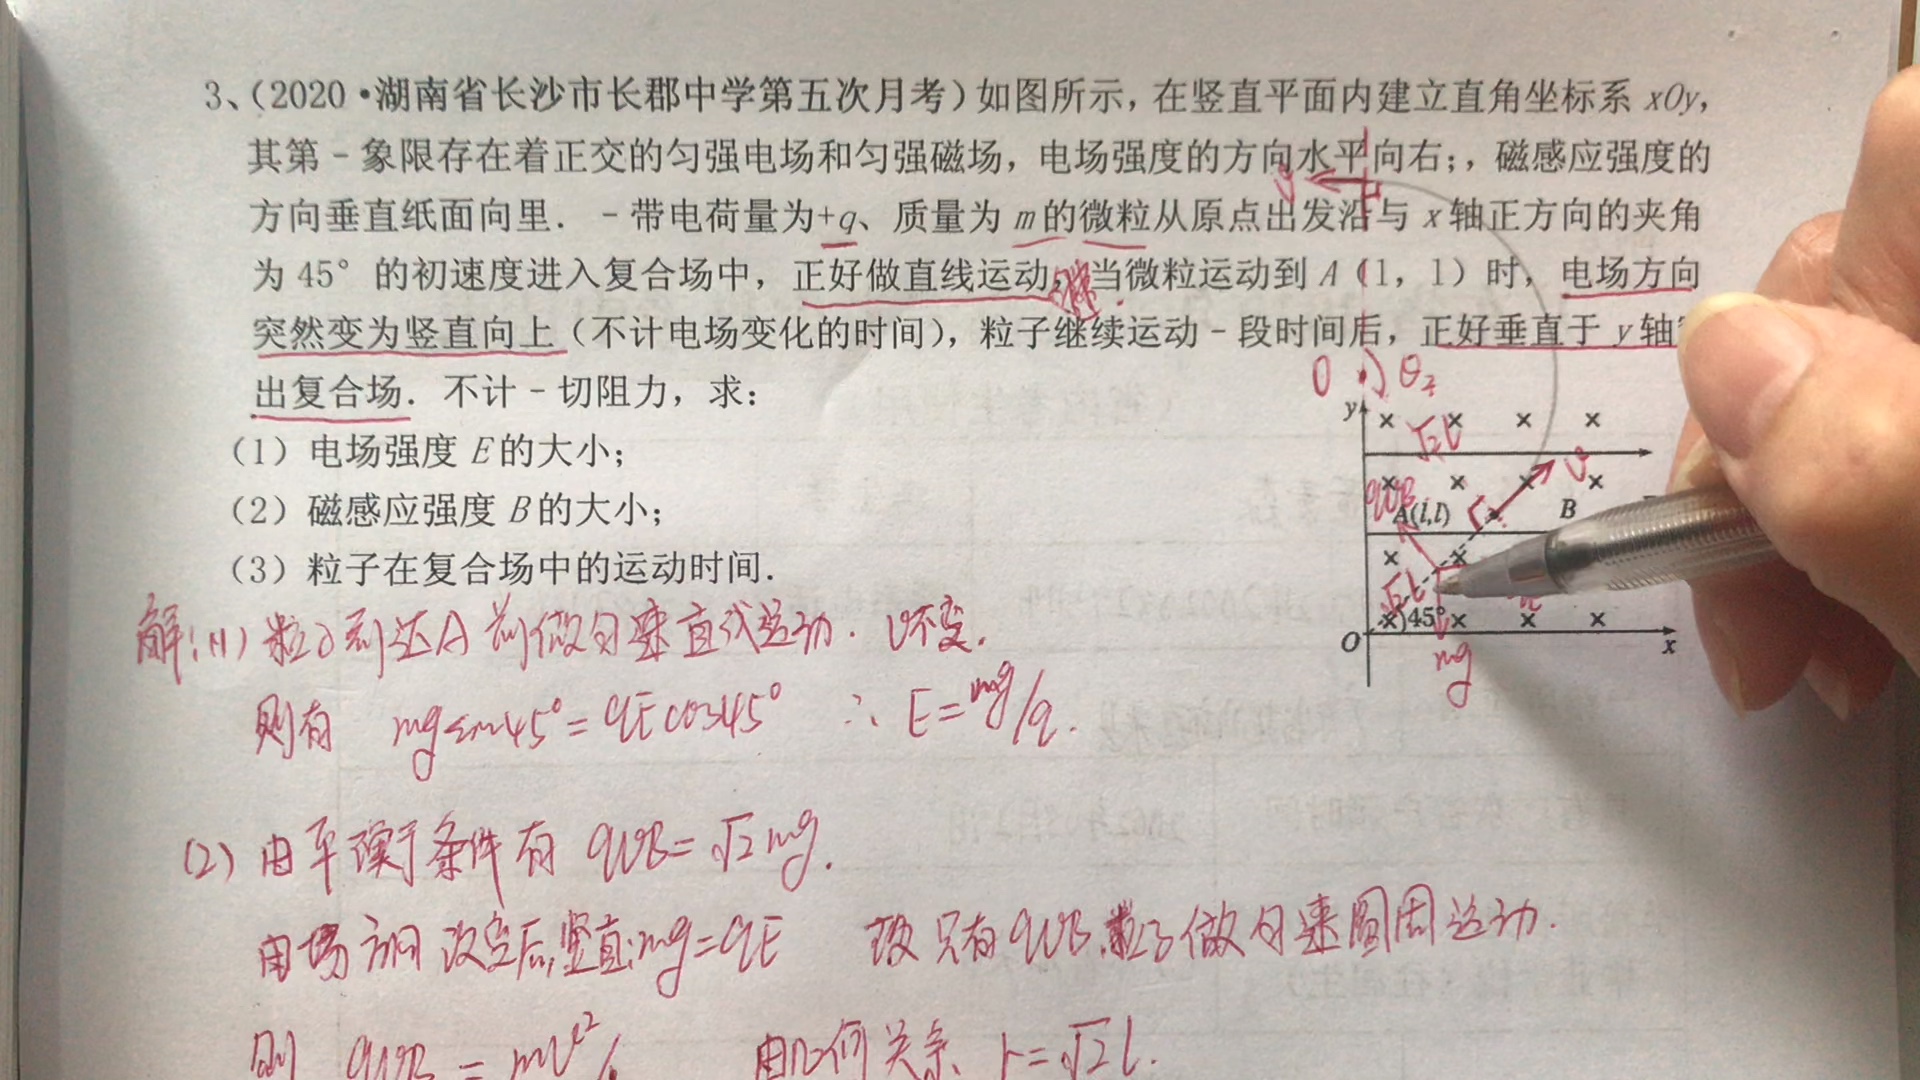 3、(2020·湖南省长沙市长郡中学第五次月考)如图所示,在竖直平面内建立直角坐标系 xOy,
其第-象限存在着正交的匀强电场和匀强磁场,电场强度的方向水平向右;,磁感应强度的
方向垂直纸面向里. -带电荷量为+q、质量为 m 的微粒从原点出发沿与 x 轴正方向的夹角
为 45° 的初速度进入复合场中,正好做直线运动,当微粒运动到 A (l, l) 时,电场方向
突然变为竖直向上(不计电场变化的时间),粒子继续运动-段时间后,正好垂直于 y 轴
出复合场. 不计-切阻力,求:
(1)电场强度 E 的大小;
(2)磁感应强度 B 的大小;
(3)粒子在复合场中的运动时间.
y
√2l
v
qvB
A(l,l)
B
√2l
45°
O
x
mg
解:(1) 粒子到达A前做匀速直线运动. v不变.
则有 mgsin45°=qEcos45° ∴ E=mg/q.
(2) 由平衡条件有 qvB=√2mg.
电场方向改变后,竖直:mg=qE 故只有qvB,粒子做匀速圆周运动.
则 qvB = mv²/ 由几何关系 r=√2l.